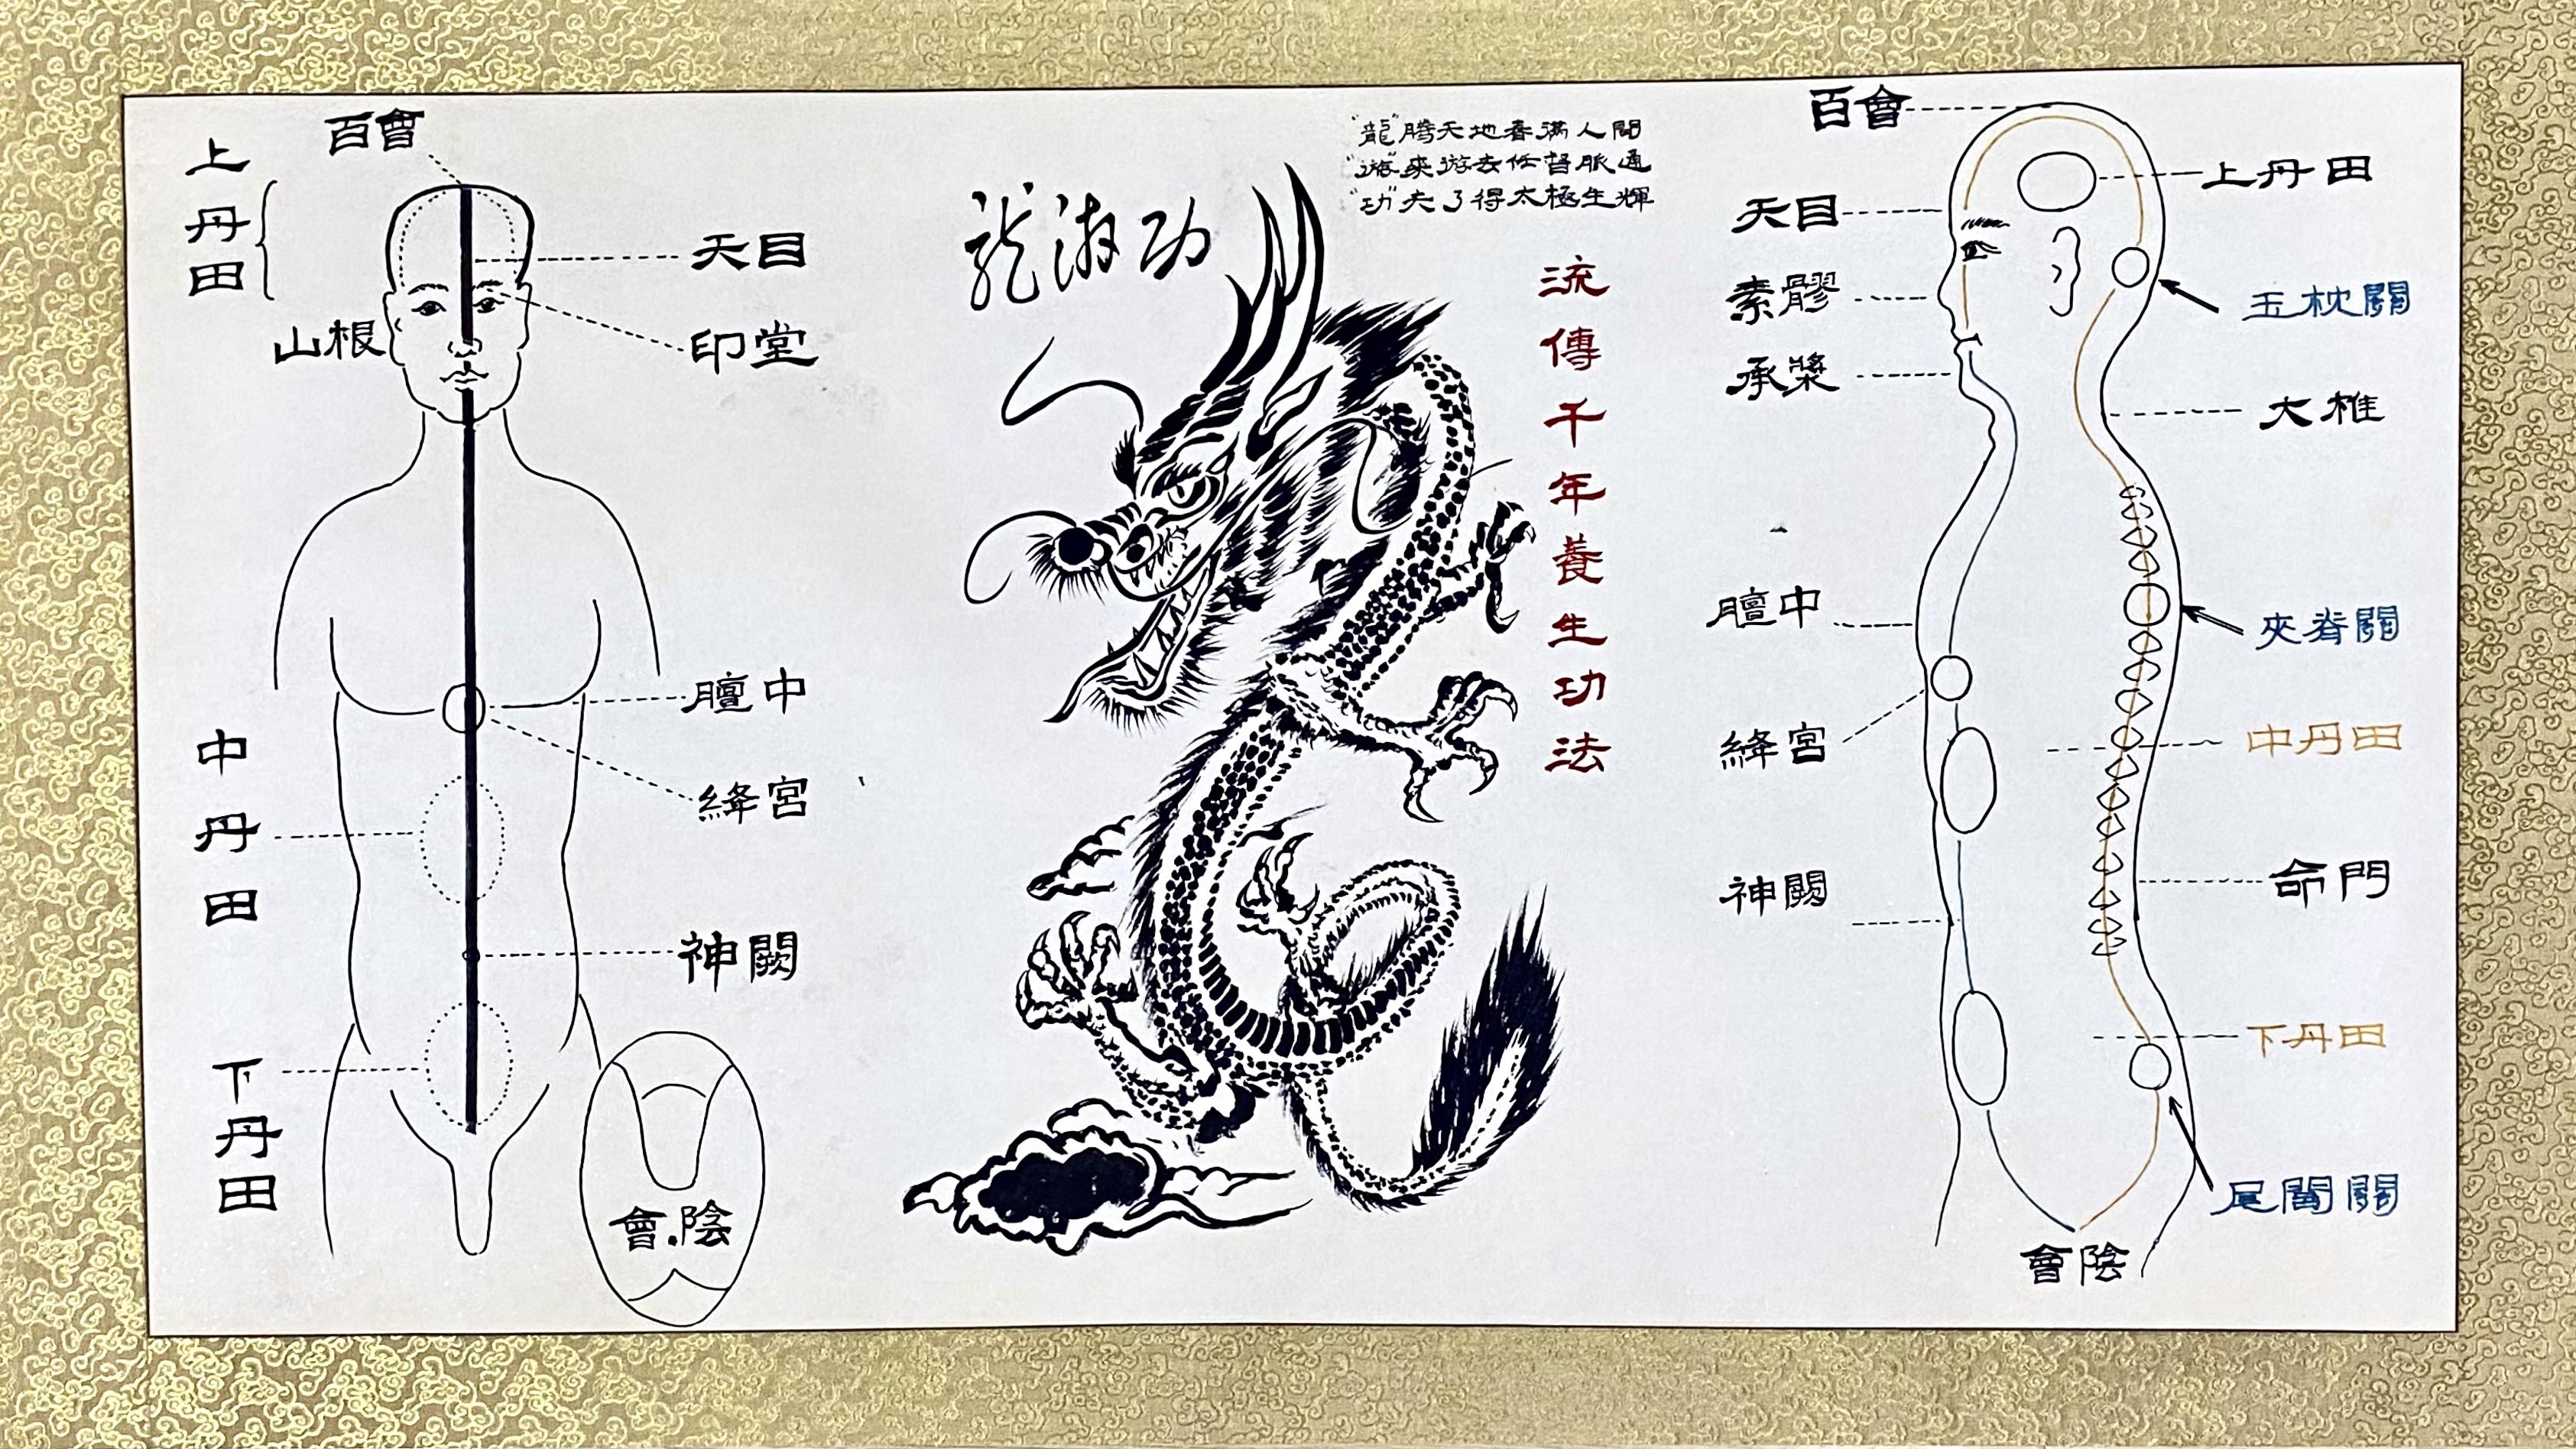 百會
上丹田
天目
印堂
山根
膻中
絳宮
中丹田
神闕
下丹田
會.陰
龍游功
"龍"腾天地春滿人間
"游"來游去任督脈通
"功"夫了得太極生輝
流傳千年養生功法
百會
上丹田
天目
玉枕關
素髎
承漿
大椎
膻中
夾脊關
絳宮
中丹田
神闕
命門
下丹田
尾閭關
會陰